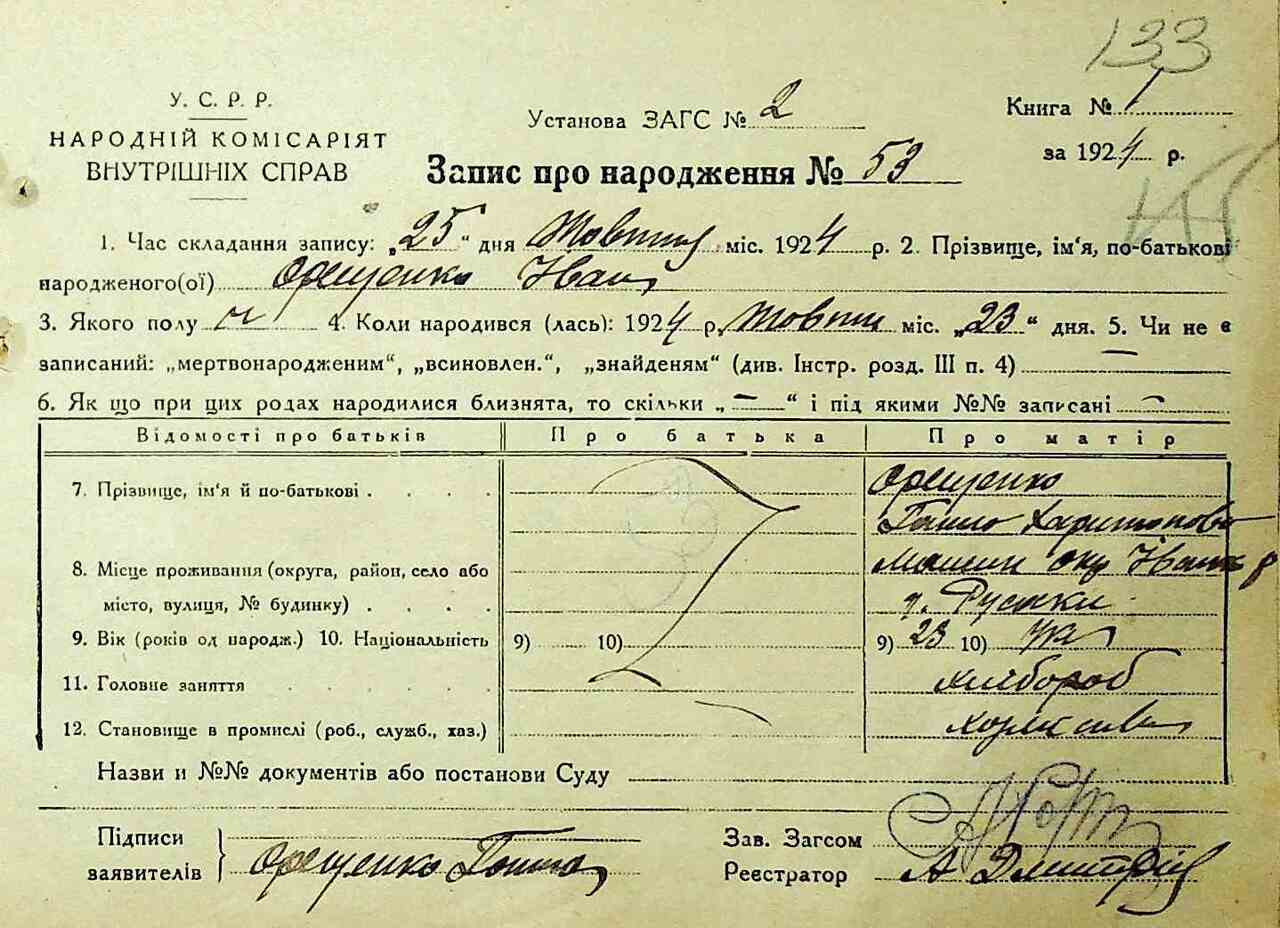 133
У. С. Р. Р.
НАРОДНІЙ КОМІСАРІЯТ
ВНУТРІШНІХ СПРАВ
Установа ЗАГС № 2
Книга № 1
за 1924 р.
Запис про народження № 53
1. Час складання запису: „25“ дня Жовтня міс. 1924 р. 2. Прізвище, ім'я, по-батькові
народженого(ої) Орещенко Іван
3. Якого полу ч 4. Коли народився (лась): 1924 р. Жовтня міс. „23“ дня. 5. Чи не є
записаний: „мертвонародженим“, „всиновлен.“, „знайденям“ (див. Інстр. розд. III п. 4) —
6. Як що при цих родах народилися близнята, то скільки „—“ і під якими №№ записані —
Відомості про батьків Про батька Про матір
7. Прізвище, ім'я й по-батькові . . . . Орещенко
Ганна Харитоновна
8. Місце проживання (округа, район, село або
місто, вулиця, № будинку) . . . .
9. Вік (років од народж.) 10. Національність 9) 10) 9) 23 10) Укр
11. Головне заняття . . . . . хлібороб
12. Становище в промислі (роб., служб., хаз.)
Назви и №№ документів або постанови Суду
Підписи
заявителів } Орещенко Ганна
Зав. Загсом
Реєстратор А Дмитрів